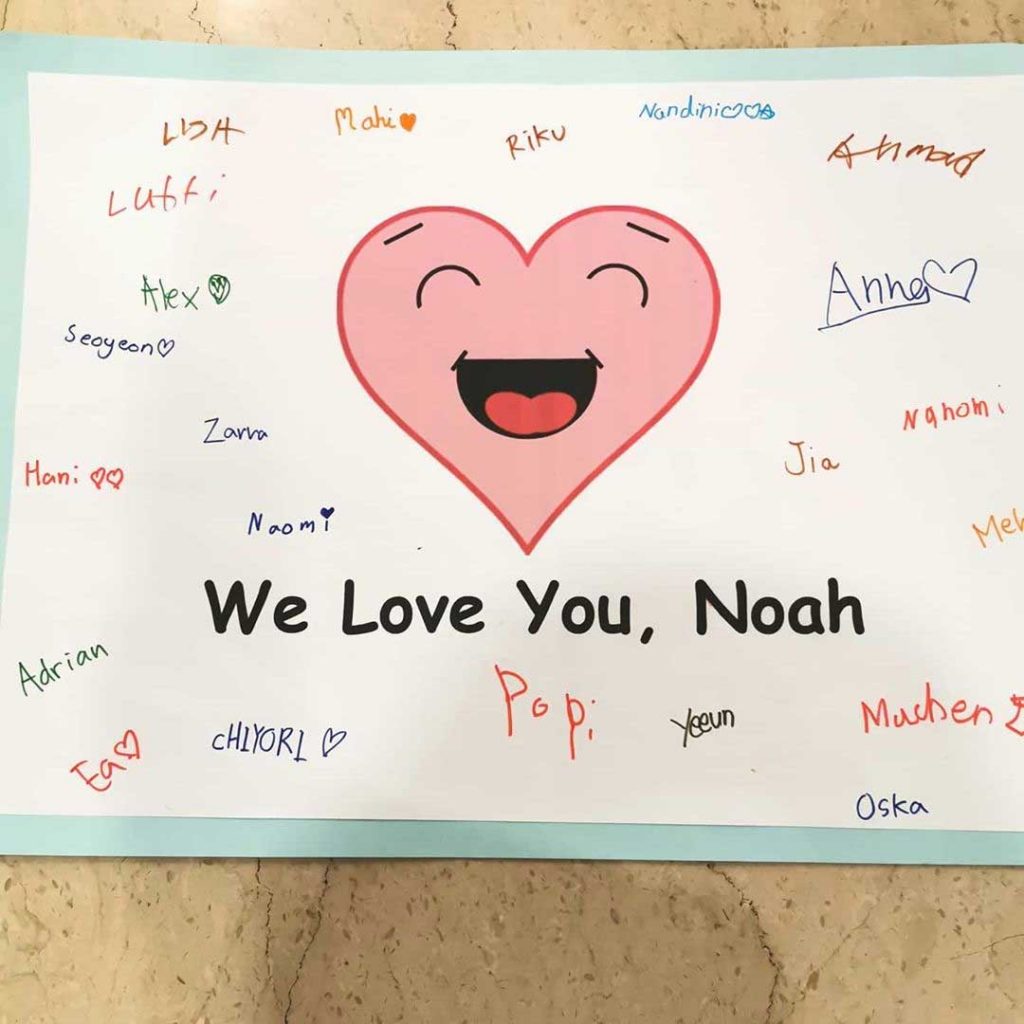 Mahi
Nandini
Riku
Ahmad
Lutfi
Alex
Anna
Seoyeon
Zarra
Jia
Hani
Naomi
We Love You, Noah
Adrian
Popi
Yeeun
CHIYORI
Ea
Oska